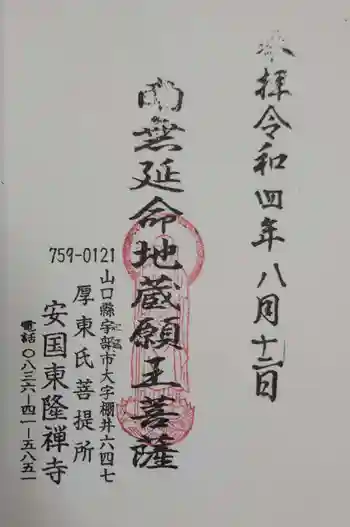 奉拝令和四年八月十二日
南無延命地蔵願王菩薩
759-0121
山口縣宇部市大字棚井六四七
厚東氏菩提所
安国東隆禅寺
電話〇八三六-四一-五八五一